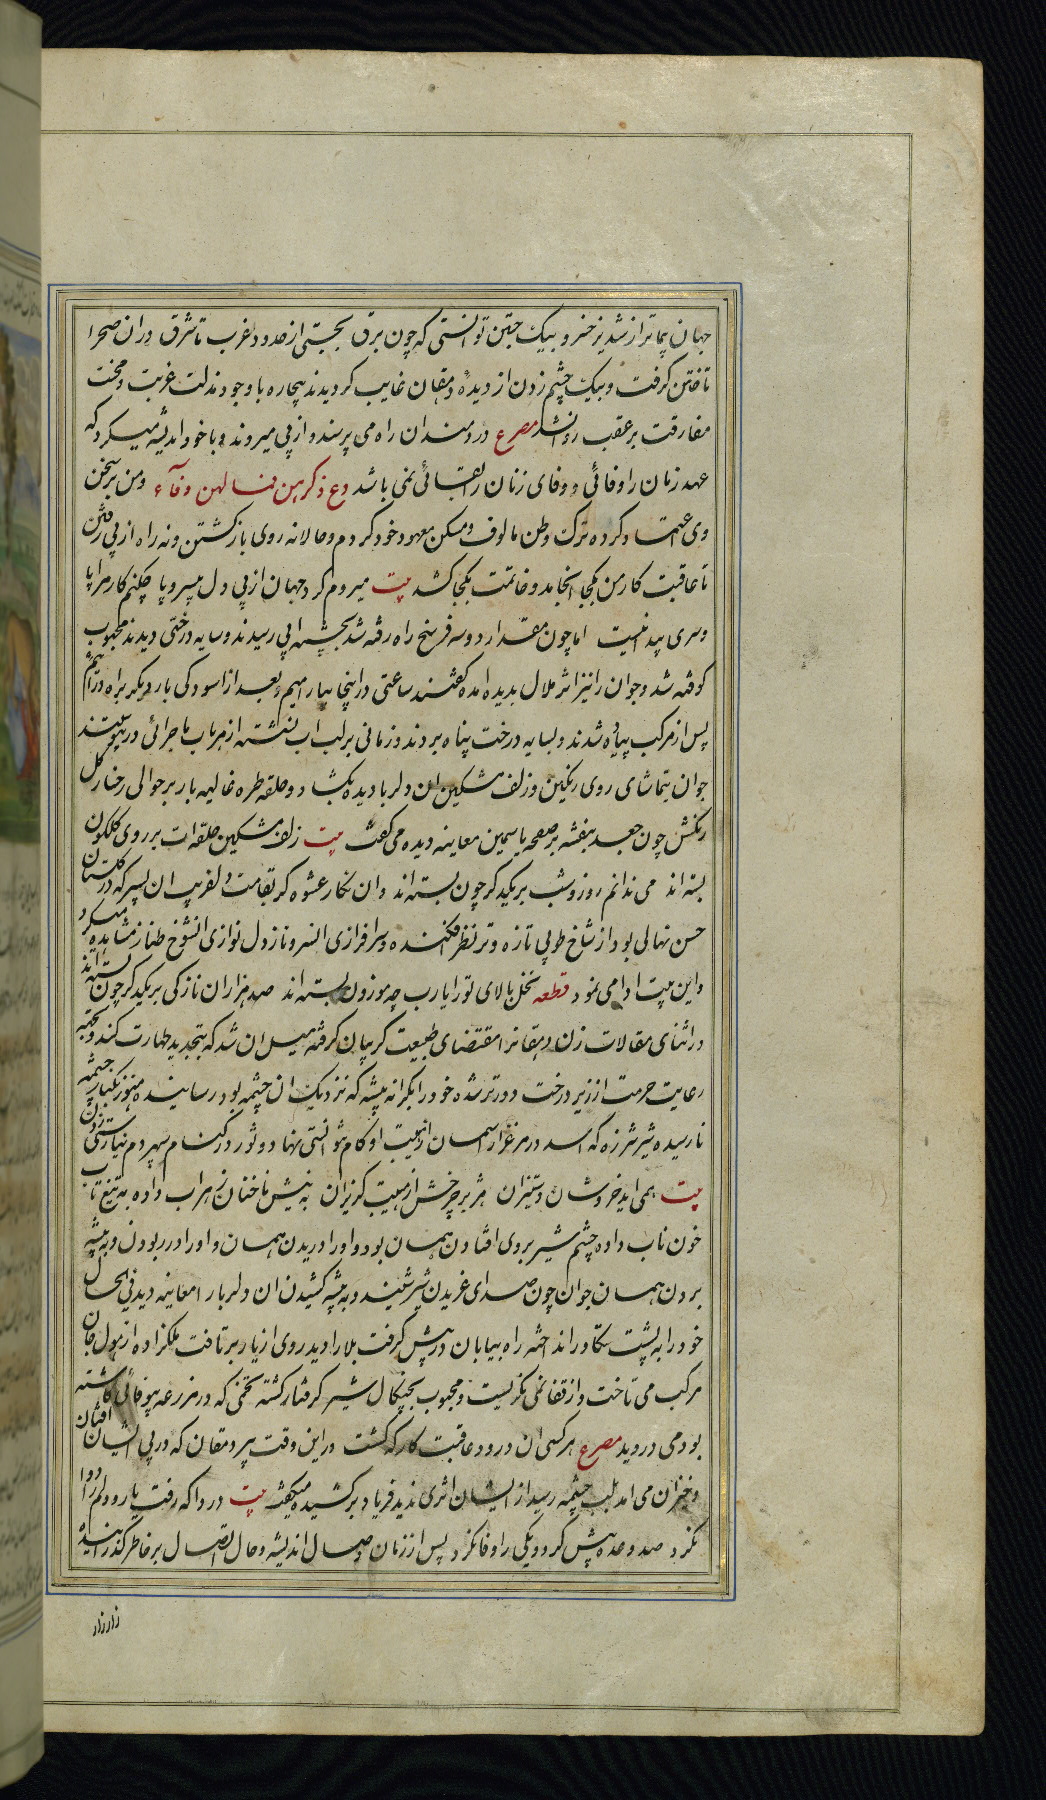 جهان پیماتر از شبدیز خسرو بیک جستن توانستی که چون برق بجستی از حدود مغرب تا مشرق دران صحرا
تاختن گرفت و بیک چشم زدن از دیدهٔ دهقان غایب کردیدند بیچاره با وجود مذلت غربت و محنت
مفارقت بر عقب روان شد مصرع دردمندان راه می پرسند و از پی میروند و با خود اندیشه میکرد که
عهد زنان را وفائی و وفای زنان را بقائی نمی باشد دع ذکرهن فما لهن وفآء ومن بر سخن
وی اعتماد کرده ترک وطن مالوف و مسکن معهود خود کردم و حالا نه روی بازکشتن و نه راه از پی رفتن
تا عاقبت کار من بکجا انجامد و خاتمت بکجا کشد بیت میروم کرد جهان از پی دل بیسر و پا چکنم کار مرا پا
و سری پیدا نیست اما چون مقدار دو سه فرسخ راه رفته شد بچشمه ای رسیدند و سایه درختی دیدند محبوب
کوفته شد و جوان را نیز اثر ملال بدیده امده کفتند ساعتی در اینجا بیارامیم و بعد از اسودکی بار دیکر براه درائیم
پس از مرکب پیاده شدند و بسایه درخت پناه بردند و زمانی بر لب اب نشسته از هر باب ماجرائی در پیوستند
جوان بتماشای روی رنکین و زلف مشکین ان دلربا دیده بکشاد و حلقه طره غالیه بار بر حوالی رخسار کل
رنکش چون جعد بنفشه بر صفحه یاسمین معاینه دیده می کفت بیت زلف مشکین حلقه ات بر روی کلکون
بسته اند می ندانم روز و شب بر یکدکر چون بسته اند وان نکار عشوه کر بقامت دلفریب ان پسر که در کلستان
حسن نهالی بود از شاخ طوبی تازه و تر نظر فکنده و سرافرازی ان سرو ناز و دل نوازی ان شوخ طناز مشاهده میکرد
و این بیت ادا می نمود قطعه نخل بالای تو را یارب چه موزون بسته اند صد هزاران نازکی بر یکدکر چون بسته اند
در اثنای مقالات زن دهقانرا مقتضای طبیعت کریبان کرفته میل ان شد که بتجدید طهارت کند و بجهة
رعایت حرمت از زیر درخت دورتر شده خود را بکرانه بیشه که نزدیک ان چشمه بود رسانید هنوز بکنار چشمه
نارسیده شیر شرزه که اسد در مرغزار اسمان از هیبت او کام نتوانستی نهاد و ثور در کنام سپهر دم نیارستی زدن
بیت همی امد خروشان و ستیزان هژبر چرخش از هیبت کریزان به نیش ناخنان زهراب داده به تیغ تاب
خون ناب داده چشم شیر بر وی افتادن همان بود و او را دریدن همان و او را در ربودن و به بیشه
بردن همان جوان چون صدای غریدن شیر شنید و به بیشه کشیدن ان دلربا را معاینه دید فی الحال
خود را به پشت تکاور انداخته راه بیابان در پیش کرفت بلا را دید روی از یار برتافت ملکزاده از هول جان
مرکب می تاخت و از قفا نمی نکریست و محبوب بچنکال شیر کرفتار کشته تخمی که در مزرعه بیوفائی کاشته
بود می دروید مصرع هر کسی ان درود عاقبت کار که کشت در این وقت پیر دهقان که در پی ایشان افتان
و خیزان می امد بلب چشمه رسید از ایشان اثری ندید فریاد برکشید میکفت بیت دردا که رفت یار و دلم را دوا
نکرد صد وعده پیش کرد و یکی را وفا نکرد پس از زمان وصال اندیشه و حال اتصال بر خاطر کذرانیده
زار زار